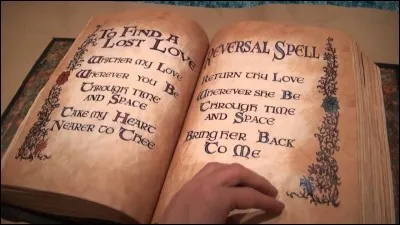 To Find A
Lost Love
Whither my Love
Wherever you Be
Through time
and Space
Take my Heart
Nearer to Thee
Reversal Spell
Return thy Love
Wherever she Be
Through time
and Space
Bring her Back
To Me